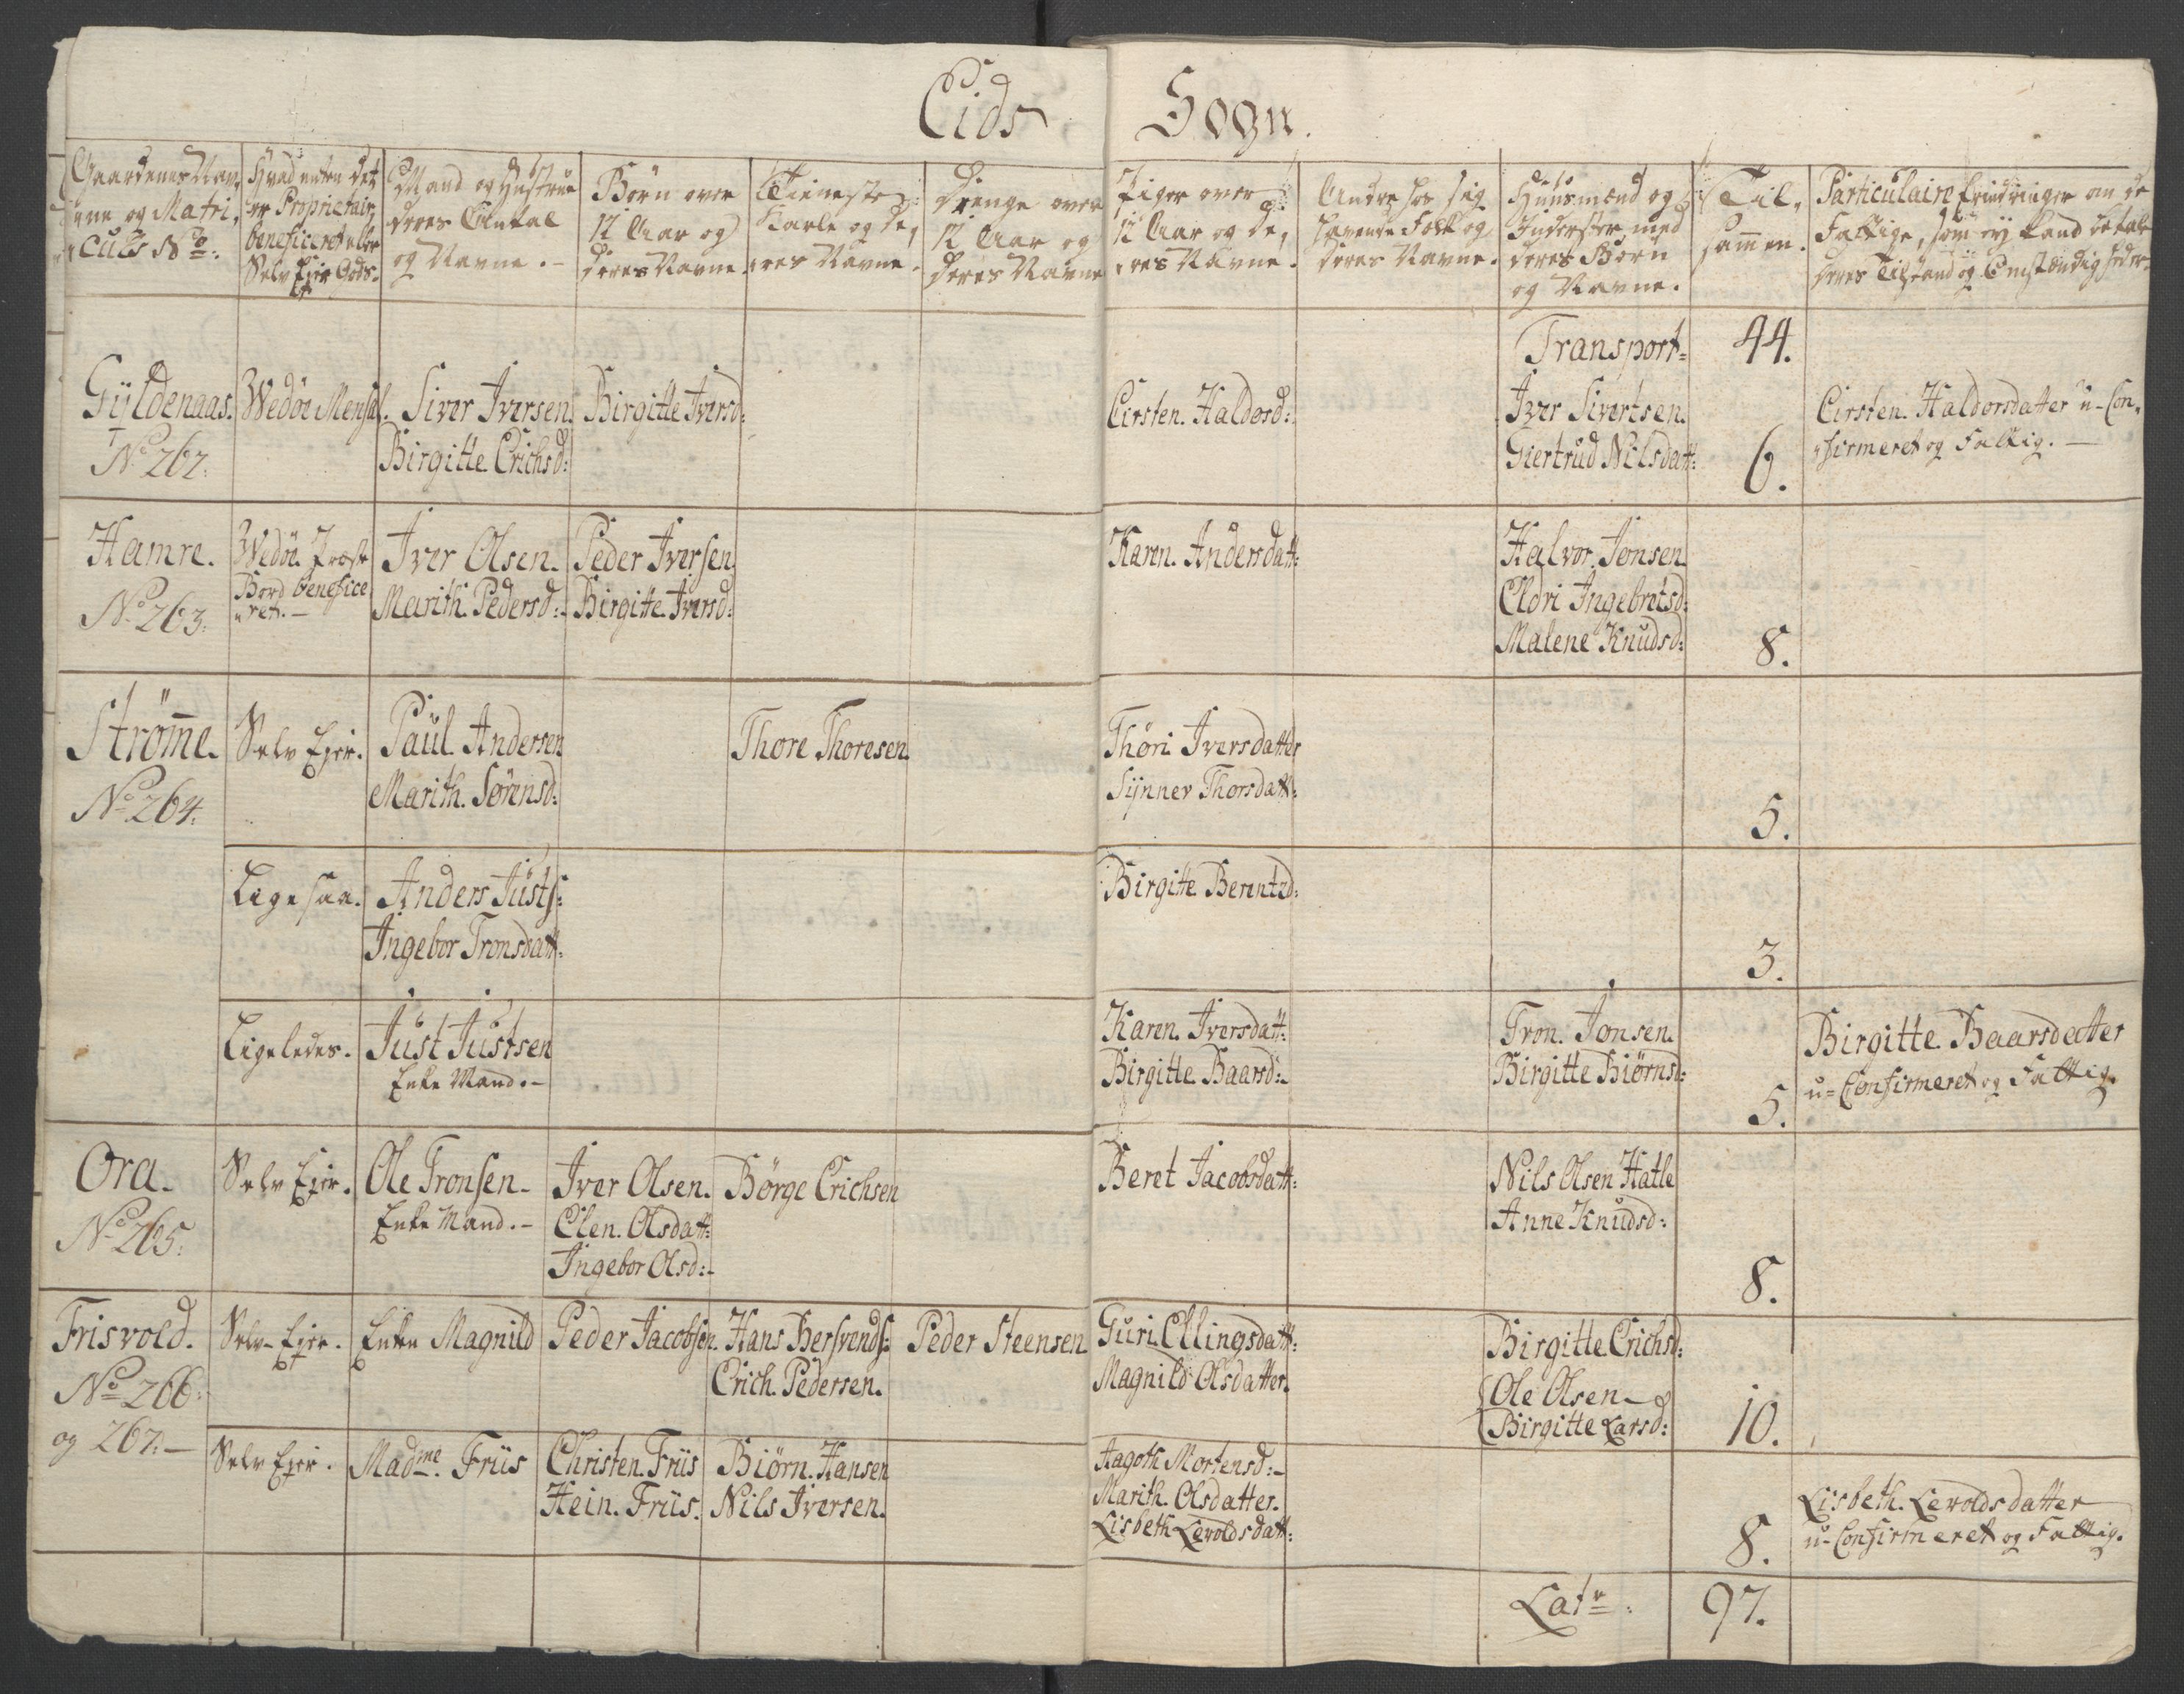 Eids Sogn.
Gaardenes Nav,
nene og Matri,
culs No:
Hvad enten det
er Proprietair,
beneficeret eller
Selv Ejer Gods.
Mand og Hustrue
deres Antal
og Navne. -
Børn over
12 Aar og
deres Navne
Tieneste
Karle og de,
res Navne.
Drenge over
12 Aar og
deres Navne
Piger over
12 Aar og de,
res Navne.
Andre hos sig
havende Folk og
deres Navne.
Huusmænd og
Inderster med
deres Børn
og Navne.
Til,
sammen.
Particulaire Erindringer om de
Fattige, som ej kand betale
deres Tilstand og Omstændigheder
Transport= 44.
Gyldenaas.
No 262.
Wedøe Mensal.
Siver Iversen.
Birgitte Erichsd:
Birgitte Iversd:
Cirsten. Haldorsd:
Iver Sivertsen.
Giertrud Nilsdatt:
6.
Cirsten. Haldorsdatter u-Con,
firmeret og Fattig. -
Hamre.
No 263.
Wedøe Præste
Bord benefice
ret. -
Iver Olsen.
Marith. Pedersd:
Peder Iversen
Birgitte Iversd:
Karen. Andersdatt:
Halvor. Jonsen
Eldri Ingebretsd:
Malene Knudsd:
8.
Strømme.
No 264.
Selv Ejer.
Paul Andersen
Marith. Sørensd:
Thore Thoresen
Thøri Iversdatter
Synnev Thorsdatt:
5.
Ligesaa.
Anders Justs:
Ingebor Tronsdatt:
Birgitte Berentsd:
3.
Ligeledes.
Just Justsen
Enke Mand. -
Karen. Iversdatt:
Birgitte Baarsd:
Tron. Jonsen.
Birgitte Biørnsd:
5.
Birgitte Baarsdatter
u=Confirmeret og Fattig.
Ora.
No 265.
Selv Ejer.
Ole Tronsen-
Enke Mand. -
Iver Olsen.
Elen. Olsdatt:
Ingebor Olsd:
Børge Erichsen
Beret Jacobsdatt:
Nils Olsen Hatle
Anne Knudsd:
8.
Frisvold.
No 266
og 267. -
Selv-Ejer.
Enken Magnild
Peder Jacobsen.
Hans Hersvends:
Erich. Pedersen.
Peder Steensen
Guri Ellingsdatt:
Magnild Olsdatter.
Birgitte Erichsd:
Ole Olsen-
Birgitte Larsd:
10.
Selv Ejer.
Madme. Friis
Christen. Friis
Hein. Friis.
Biørn. Hansen
Nils Iversen.
Aagoth Mortensd:-
Marith. Olsdatter.
Lisbeth Levoldsdatt:
8.
Lisbeth. Levoldsdatter
u-Confirmeret og Fattig.
Latr: 97.